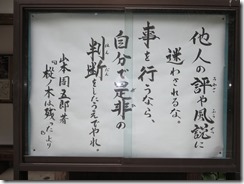 他人の評や風説に
迷わされるな。
事を行うなら、
自分で是非の
判断をしたうえでやれ。
山本周五郎著
樅ノ木は残ったより